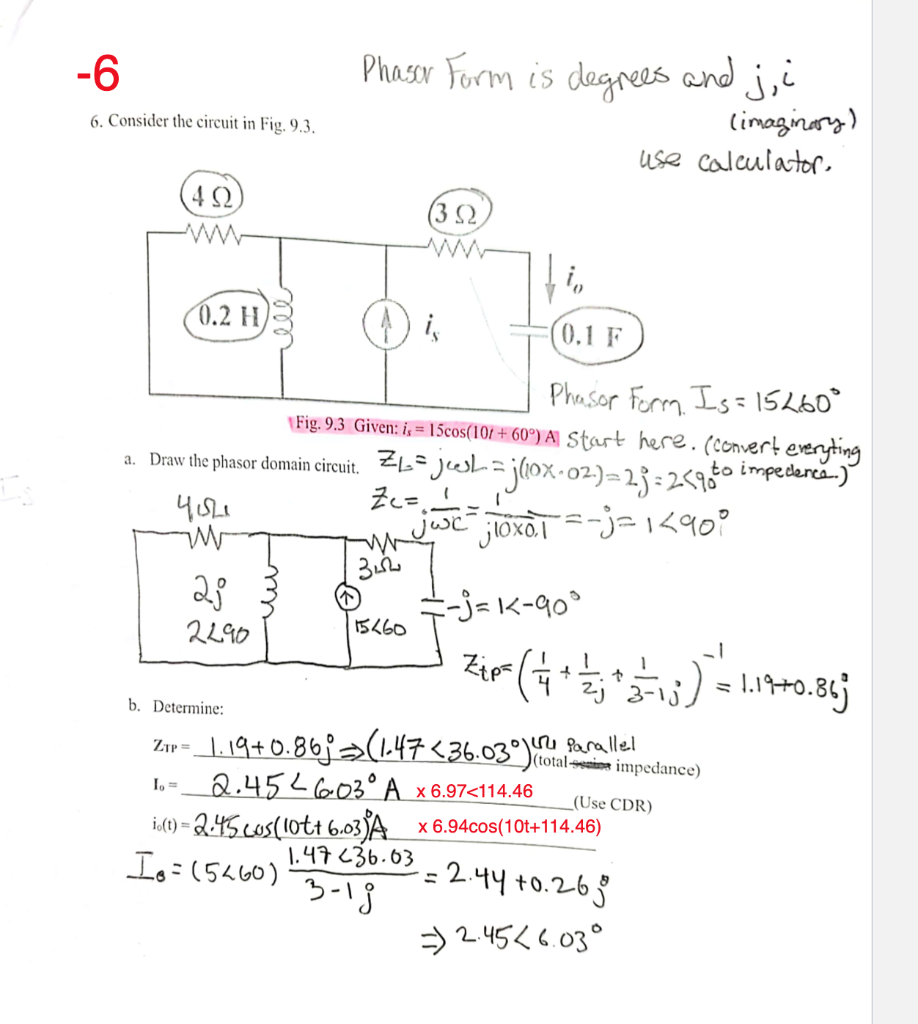 -6
Phasor Form is degrees and j,i
(imaginary)
use calculator.
6. Consider the circuit in Fig. 9.3.
4 Ω
3 Ω
i₀
0.2 H
iₛ
0.1 F
Phasor Form. Is = 15∠60°
Fig. 9.3 Given: iₛ = 15cos(10t + 60°) A
Start here. (convert everyting
to impedence.)
a. Draw the phasor domain circuit.
ZL = jωL = j(10x·02) = 2j = 2<90°
Zc = 1/jωC = 1/j10x0.1 = -j = 1<90°
4Ω
3Ω
2j
2∠90
15<60
-j = 1<-90°
Ztp = (1/4 + 1/2j + 1/3-1j)⁻¹ = 1.19+0.86j
b. Determine:
ZTP = 1.19+0.86j ⇒ (1.47<36.03°) Parallel
(total series impedance)
Iₒ = 2.45∠6.03° A x 6.97<114.46
(Use CDR)
iₒ(t) = 2.45cos(10t+6.03°)A x 6.94cos(10t+114.46)
Io = (5∠60) 1.47<36.03 / 3-1j = 2.44+0.26j
⇒ 2.45<6.03°